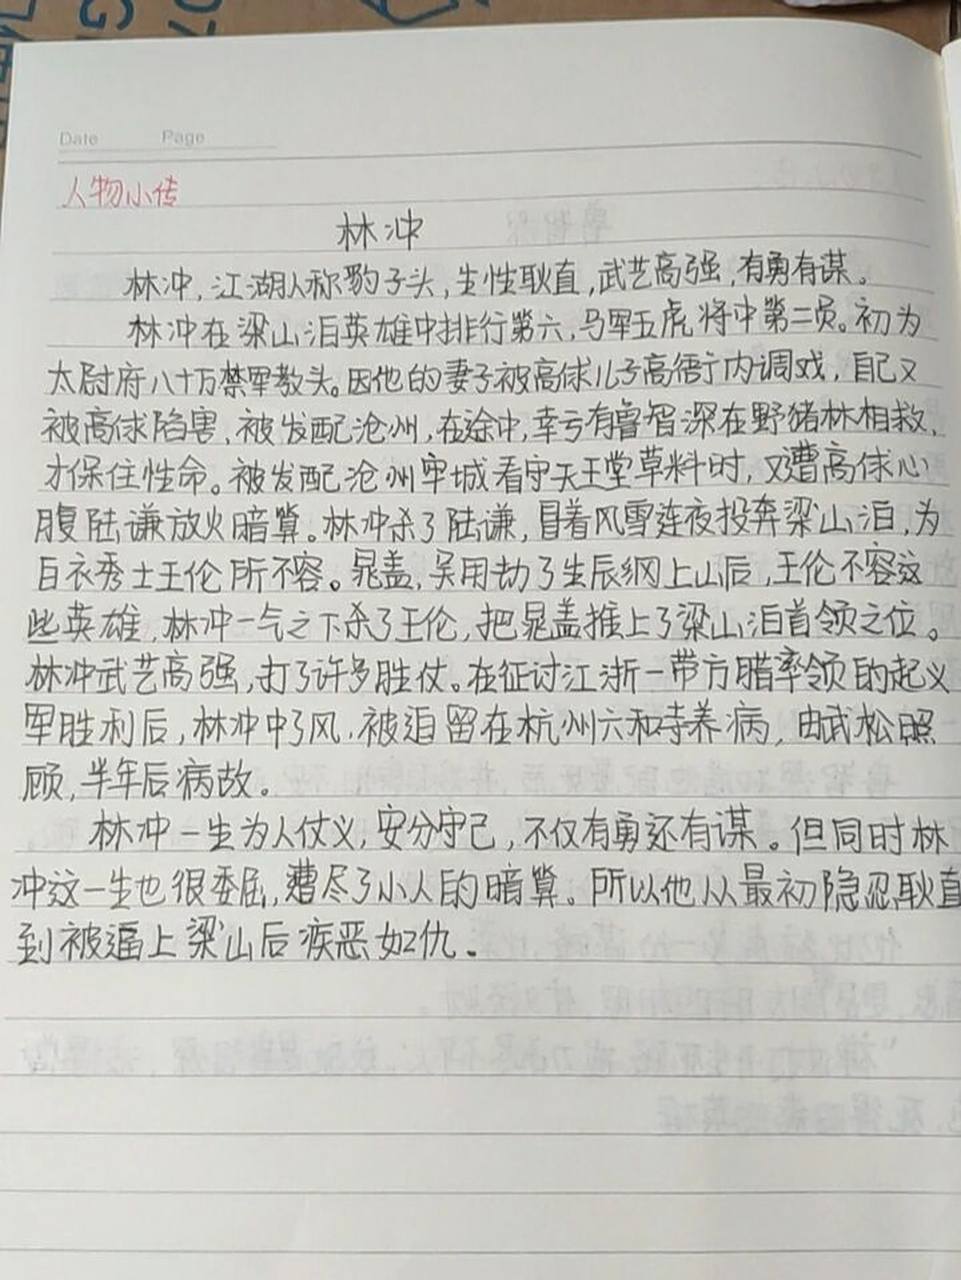 Date Page
人物小传
林冲
林冲,江湖人称豹子头,生性耿直,武艺高强,有勇有谋。
林冲在梁山泊英雄中排行第六,马军五虎将中第二员。初为
太尉府八十万禁军教头。因他的妻子被高俅儿子高衙内调戏,自己又
被高俅陷害,被发配沧州,在途中,幸亏有鲁智深在野猪林相救,
才保住性命。被发配沧州牢城看守天王堂草料时,又遭高俅心
腹陆谦放火暗算。林冲杀了陆谦,冒着风雪连夜投奔梁山泊,为
白衣秀士王伦所不容。晁盖,吴用劫了生辰纲上山后,王伦不容这
些英雄,林冲一气之下杀了王伦,把晁盖推上了梁山泊首领之位。
林冲武艺高强,打了许多胜仗。在征讨江浙一带方腊率领的起义
军胜利后,林冲中了风,被迫留在杭州六和寺养病,由武松照
顾,半年后病故。
林冲一生为人仗义,安分守己,不仅有勇还有谋。但同时林
冲这一生也很委屈,遭尽了小人的暗算。所以他从最初隐忍耿直
到被逼上梁山后疾恶如仇。